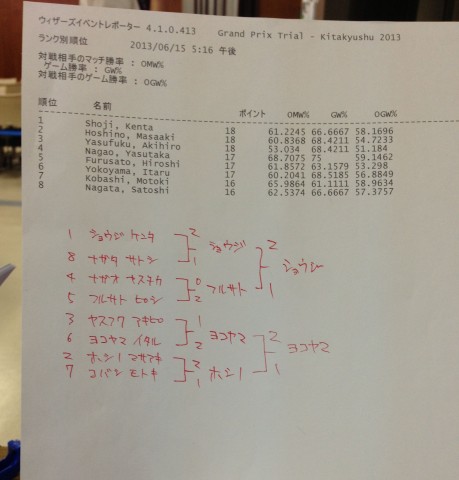 ウィザーズイベントレポーター 4.1.0.413 Grand Prix Trial - Kitakyushu 2013
ランク別順位 2013/06/15 5:16 午後
対戦相手のマッチ勝率 : OMW%
ゲーム勝率 : GW%
対戦相手のゲーム勝率 : OGW%
順位 名前 ポイント OMW% GW% OGW%
1 Shoji, Kenta 18 61.2245 66.6667 58.1696
2 Hoshino, Masaaki 18 60.8368 68.4211 54.7233
3 Yasufuku, Akihiro 18 53.034 68.4211 51.184
4 Nagao, Yasutaka 17 68.7075 75 59.1462
5 Furusato, Hiroshi 17 61.8572 63.1579 53.298
6 Yokoyama, Itaru 17 60.2041 68.5185 56.8849
7 Kobashi, Motoki 16 65.9864 61.1111 58.9634
8 Nagata, Satoshi 16 62.5374 66.6667 57.3757
1 ショウジ ケンタ 2
ショウジ 2
8 ナガタ サトシ 1
ショウジ
4 ナガオ ヤスタカ 0
フルサト 1
5 フルサト ヒロシ 2
3 ヤスフク アキヒロ 1
ヨコヤマ 2
6 ヨコヤマ イタル 2
ヨコヤマ
2 ホシノ マサアキ 2
ホシノ 1
7 コバシ モトキ 1